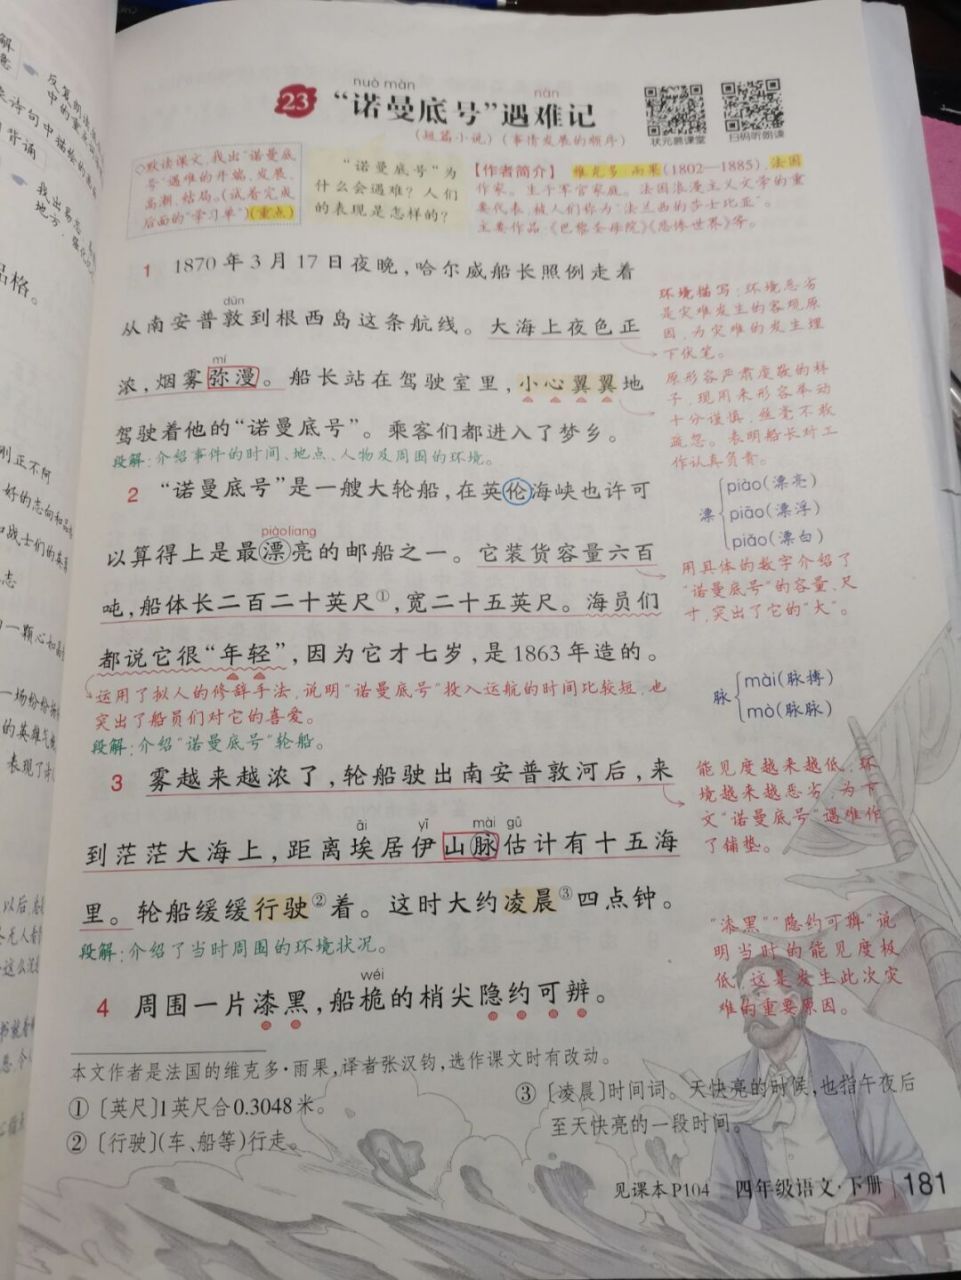 解
意
反复朗
中的重
诗句中描绘的
背诵
找出易忘
地方,强化
品格。
刚正不阿
好的志向和品
和战士们的英
志
一颗心如
一场纷纷扬
的英雄气
表现了
以后,
nuò màn
nàn
23 “诺曼底号”遇难记
(短篇小说)(事情发展的顺序)
状元晨课堂
扫码听朗读
◇默读课文,找出“诺曼底
号”遇难的开端、发展、
高潮、结局。(试着完成
后面的“学习单”)(重点)
“诺曼底号”为
什么会遇难?人们
的表现是怎样的?
【作者简介】 维克多·雨果(1802—1885),法国
作家。生于军官家庭。法国浪漫主义文学的重
要代表,被人们称为“法兰西的莎士比亚”。
主要作品:《巴黎圣母院》《悲惨世界》等。
1 1870年3月17日夜晚,哈尔威船长照例走着
dūn
从南安普敦到根西岛这条航线。大海上夜色正
mí
浓,烟雾弥漫。船长站在驾驶室里,小心翼翼地
驾驶着他的“诺曼底号”。乘客们都进入了梦乡。
段解:介绍事件的时间、地点、人物及周围的环境。
环境描写:环境恶劣
是灾难发生的客观原
因,为灾难的发生埋
下伏笔。
原形容严肃虔敬的样
子,现用来形容举动
十分谨慎,丝毫不敢
疏忽。表明船长对工
作认真负责。
2 “诺曼底号”是一艘大轮船,在英伦海峡也许可
piàoliang
以算得上是最漂亮的邮船之一。它装货容量六百
吨,船体长二百二十英尺①,宽二十五英尺。海员们
都说它很“年轻”,因为它才七岁,是1863年造的。
运用了拟人的修辞手法,说明“诺曼底号”投入运航的时间比较短,也
突出了船员们对它的喜爱。
段解:介绍“诺曼底号”轮船。
piào(漂亮)
漂 piāo(漂浮)
piǎo(漂白)
用具体的数字介绍了
“诺曼底号”的容量、尺
寸,突出了它的“大”。
mài(脉搏)
脉
mò(脉脉)
3 雾越来越浓了,轮船驶出南安普敦河后,来
āi yī mài gū
到茫茫大海上,距离埃居伊山脉估计有十五海
里。轮船缓缓行驶②着。这时大约凌晨③四点钟。
段解:介绍了当时周围的环境状况。
能见度越来越低,环
境越来越恶劣,为下
文“诺曼底号”遇难作
了铺垫。
wéi
4 周围一片漆黑,船桅的梢尖隐约可辨。
“漆黑”“隐约可辨”说
明当时的能见度极
低,这是发生此次灾
难的重要原因。
本文作者是法国的维克多·雨果,译者张汉钧,选作课文时有改动。
①〔英尺〕1英尺合0.3048米。
②〔行驶〕(车、船等)行走。
③〔凌晨〕时间词。天快亮的时候,也指午夜后
至天快亮的一段时间。
见课本P104 四年级语文·下册 181